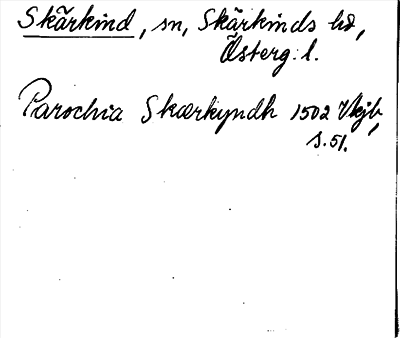 Skärkind, sn, Skärkinds hd,
Österg: l.
Parochia Skærkyndh 1502 Vkjb,
s. 51.